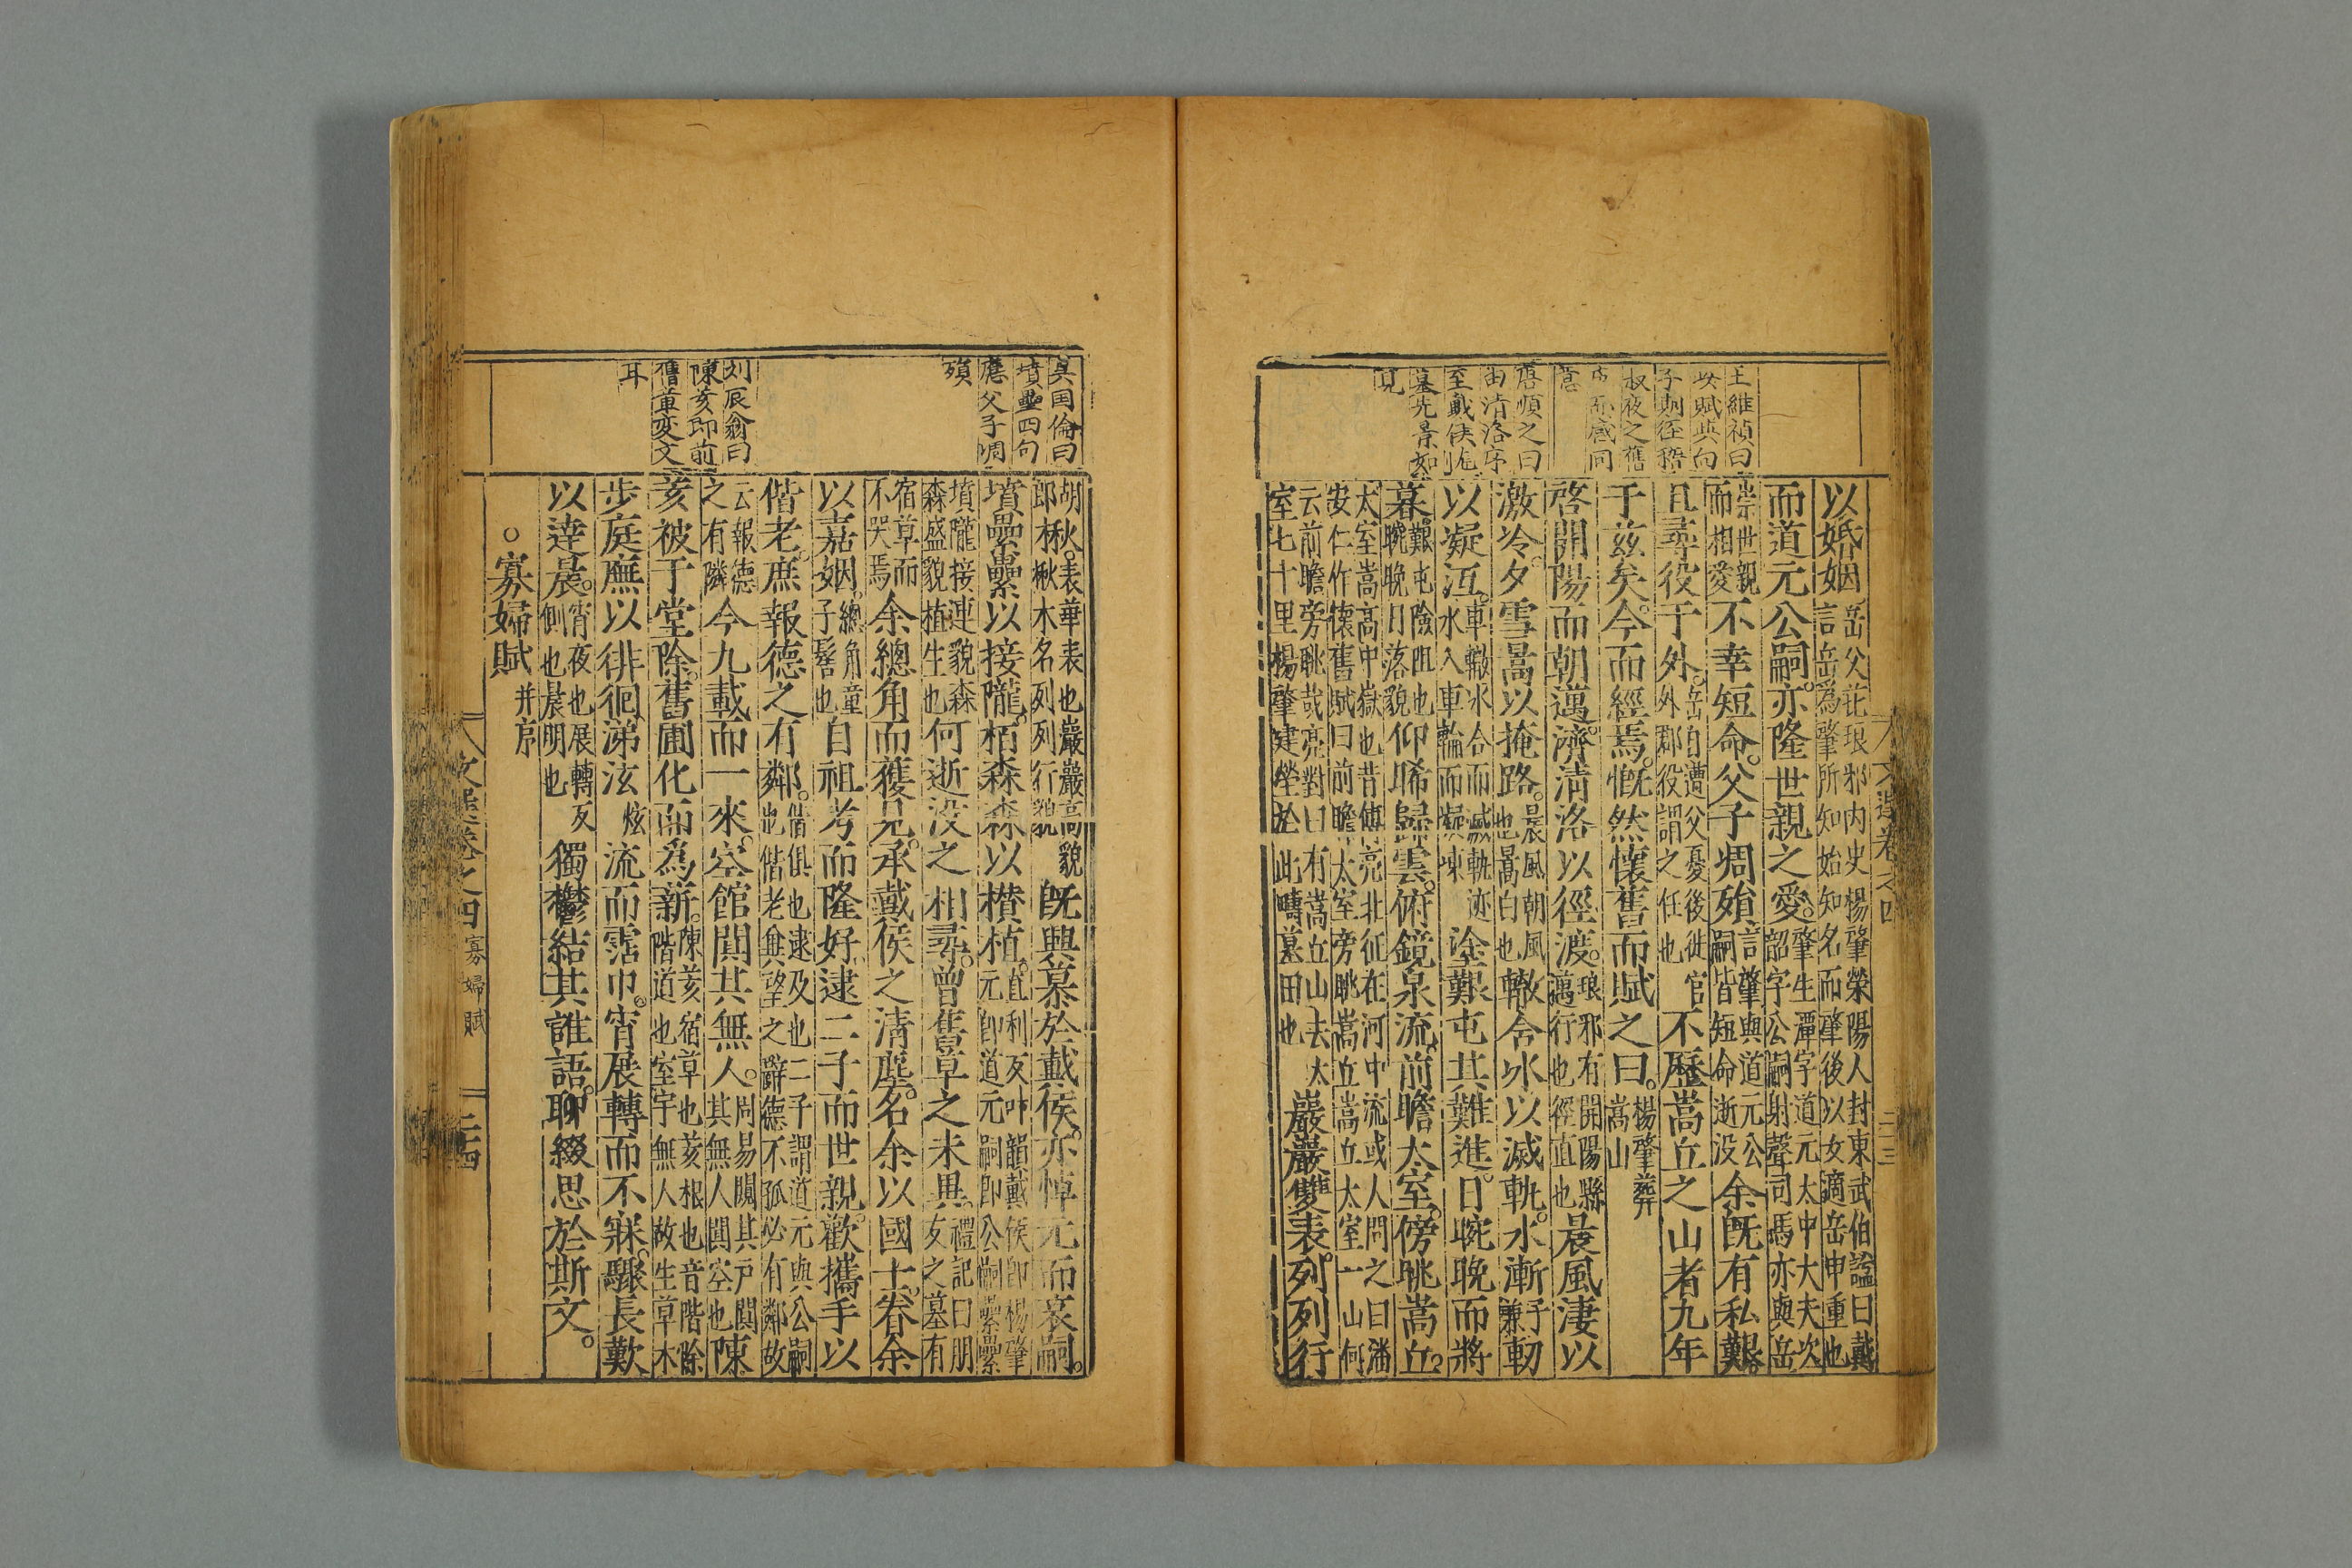 王維禎曰
安賦與向
子期徑嵇
叔夜之舊
同
意
唐順之曰
由清洛序
至戴侯
墓先景如
見
以婚姻岳父茈琅邪内史楊肇榮陽人封東武伯諡曰戴言岳爲肇所知始知名而肇後以女適岳申重也
而道元公嗣。亦隆世親之愛。肇生潭字道元太中大夫次韶字公嗣射聲司馬亦與岳
崇世親而相愛不幸短命。父子凋殞。言肇與道元公嗣皆短命逝没余旣有私艱。
且尋役于外。岳自遭父憂後徙官外郡役謂之任也不歷嵩丘之山者九年
于兹矣。今而經焉。慨然懷舊而賦之曰。楊肇葬嵩山
啓開陽而朝邁。濟清洛以徑渡。琅邪有開陽縣邁行也徑直也晨風淒以
激冷。夕雪暠以掩路。晨風朝風也暠白也轍含冰以滅軌。水漸于兼軔
以凝冱。車轍冰合而滅軌迹水入車輪而凝凍塗艱屯其難進。日晼晚而將
暮。艱屯險阻也晼晚日落貌仰睎歸雲。俯鏡泉流。前瞻太室。傍眺嵩丘。
太室嵩高中嶽也昔傅亮北征在河中流或人問之曰潘安仁作懷舊賦曰前瞻太室旁眺嵩丘嵩丘太室一山何
云前瞻旁眺哉亮對曰有嵩丘山去太室七十里楊肇建塋於此疇墓田也巖巖雙表。列列行
文選卷之四
二十三
吳国倫曰
墳壘四句
應父子凋
殞
刘辰翁曰
陳荄即前
舊草变文
耳
胡郎楸。表華表也巖巖高貌楸木名列列行貌旣興慕於戴侯。亦悼元而哀嗣。
墳壘壘以接隴。栢森森以櫕植。直利反叶韻戴侯即楊肇元即道元嗣即公嗣壘壘
墳隴接連貌森森盛貌植生也何逝没之相尋。曾舊草之未異。禮記曰朋友之墓有
宿草而不哭焉余總角而獲見。承戴侯之清塵。名余以國士。眷余
以嘉姻。總角童子髻也自祖考而隆好。逮二子而世親。歡攜手以
偕老。庶報德之有鄰。偕俱也逮及也二子謂道元與公嗣也偕老兾望之辭德不孤必有鄰故
云報德之有隣今九載而一來。空館闃其無人。周易闚其戶闃其無人闃空也陳
荄被于堂除。舊圃化而爲薪。陳荄宿草也荄根也音階除階道也室宇無人故生草木
步庭廡以徘徊。涕泫炫流而霑巾。宵展轉而不寐。驟長歎
以達晨。宵夜也展轉反側也晨明也獨鬱結其誰語。聊綴思於斯文。
○寡婦賦并序
文選卷之四
寡婦賦
二十四